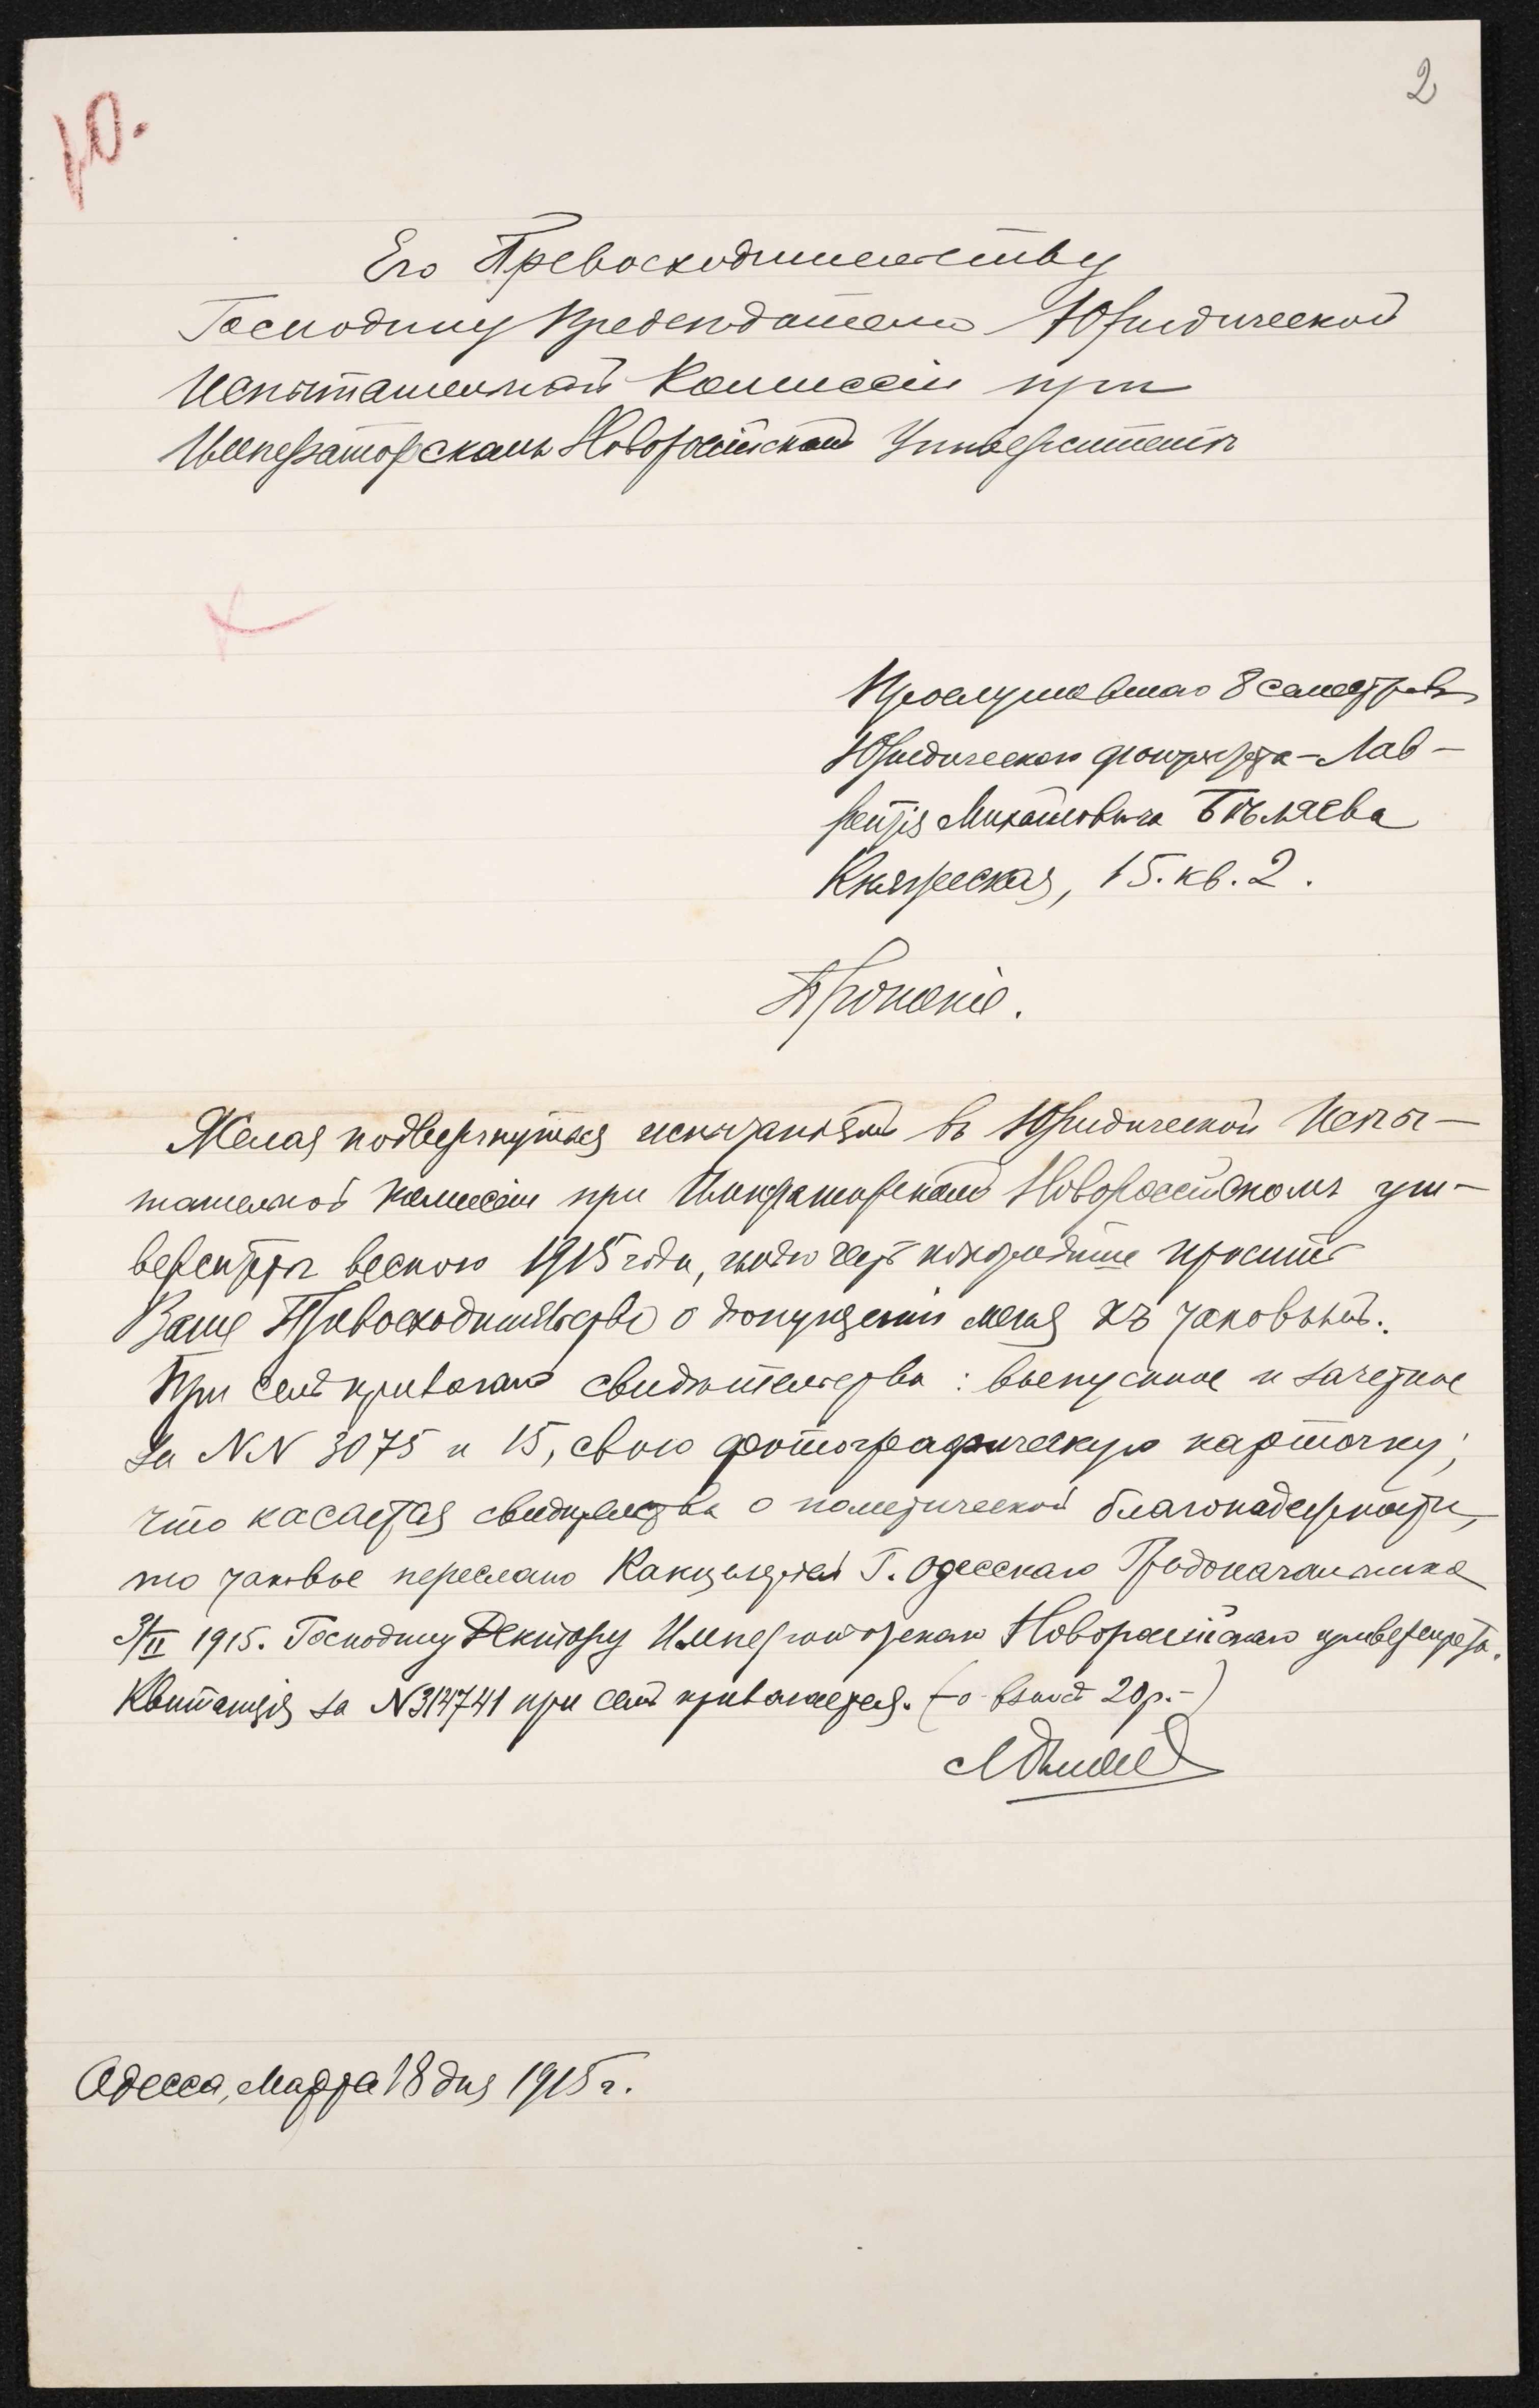 2
Ю.
Его Превосходительству
Господину Председателю Юридической
Испытательной Комиссіи при
Императорскомъ Новороссійскомъ Университетѣ
Прослушавшаго 8 семестровъ
Юридическаго факультета - Лав-
рентія Михайловича Бѣляева
Княжеская, 15. кв. 2.
Прошеніе.
Желая подвергнуться испытаніямъ въ Юридической Испы-
тательной комиссіи при Императорскомъ Новороссійскомъ уни-
верситетѣ весною 1915 года, имѣю честь покорнѣйше просить
Ваше Превосходительство о допущеніи меня къ таковымъ.
При семъ прилагаю свидѣтельства: выпускное и зачетное
за NN 3075 и 15, свою фотографическую карточку;
что касается свидѣтельства о политической благонадежности,
то таковое переслано Канцеляріей Г. Одесскаго Градоначальника
3/II 1915. Господину Ректору Императорскаго Новороссійскаго университета.
Квитанція за N 314741 при семъ прилагается. (-о взносѣ 20р.-)
ЛБѣляевъ
Одесса, Марта 18 дня 1915 г.